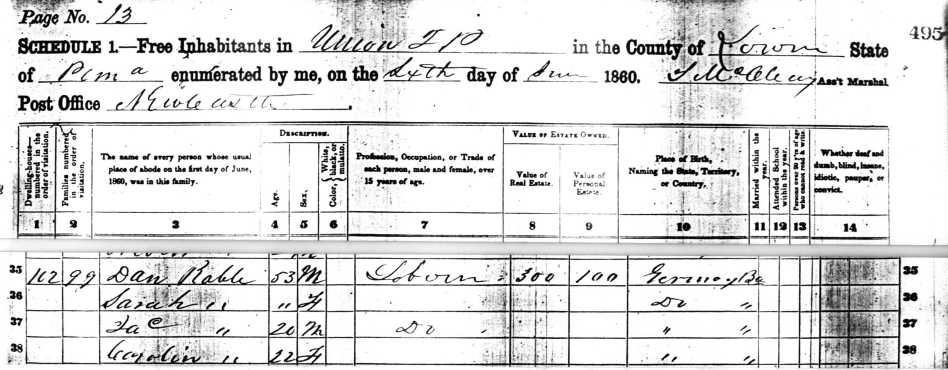 Page No. 13
495
SCHEDULE 1.—Free Inhabitants in Union T P in the County of State
of Penna enumerated by me, on the Sixth day of June 1860. Ass't Marshal
Post Office Newcastle.
Dwelling-houses—numbered in the order of visitation.
Families numbered in the order of visitation.
The name of every person whose usual place of abode on the first day of June, 1860, was in this family.
DESCRIPTION.
Age.
Sex.
Color, White, black, or mulatto.
Profession, Occupation, or Trade of each person, male and female, over 15 years of age.
VALUE OF ESTATE OWNED.
Value of Real Estate.
Value of Personal Estate.
Place of Birth, Naming the State, Territory, or Country.
Married within the year.
Attended School within the year.
Persons over 20 y'rs of age who cannot read & write.
Whether deaf and dumb, blind, insane, idiotic, pauper, or convict.
1 2 3 4 5 6 7 8 9 10 11 12 13 14
35 102 99 Dan Rable 53 M 300 100 35
36 Sarah " " F Do " 36
37 " 20 M Do " " 37
38 Carolin " 22 F " " 38